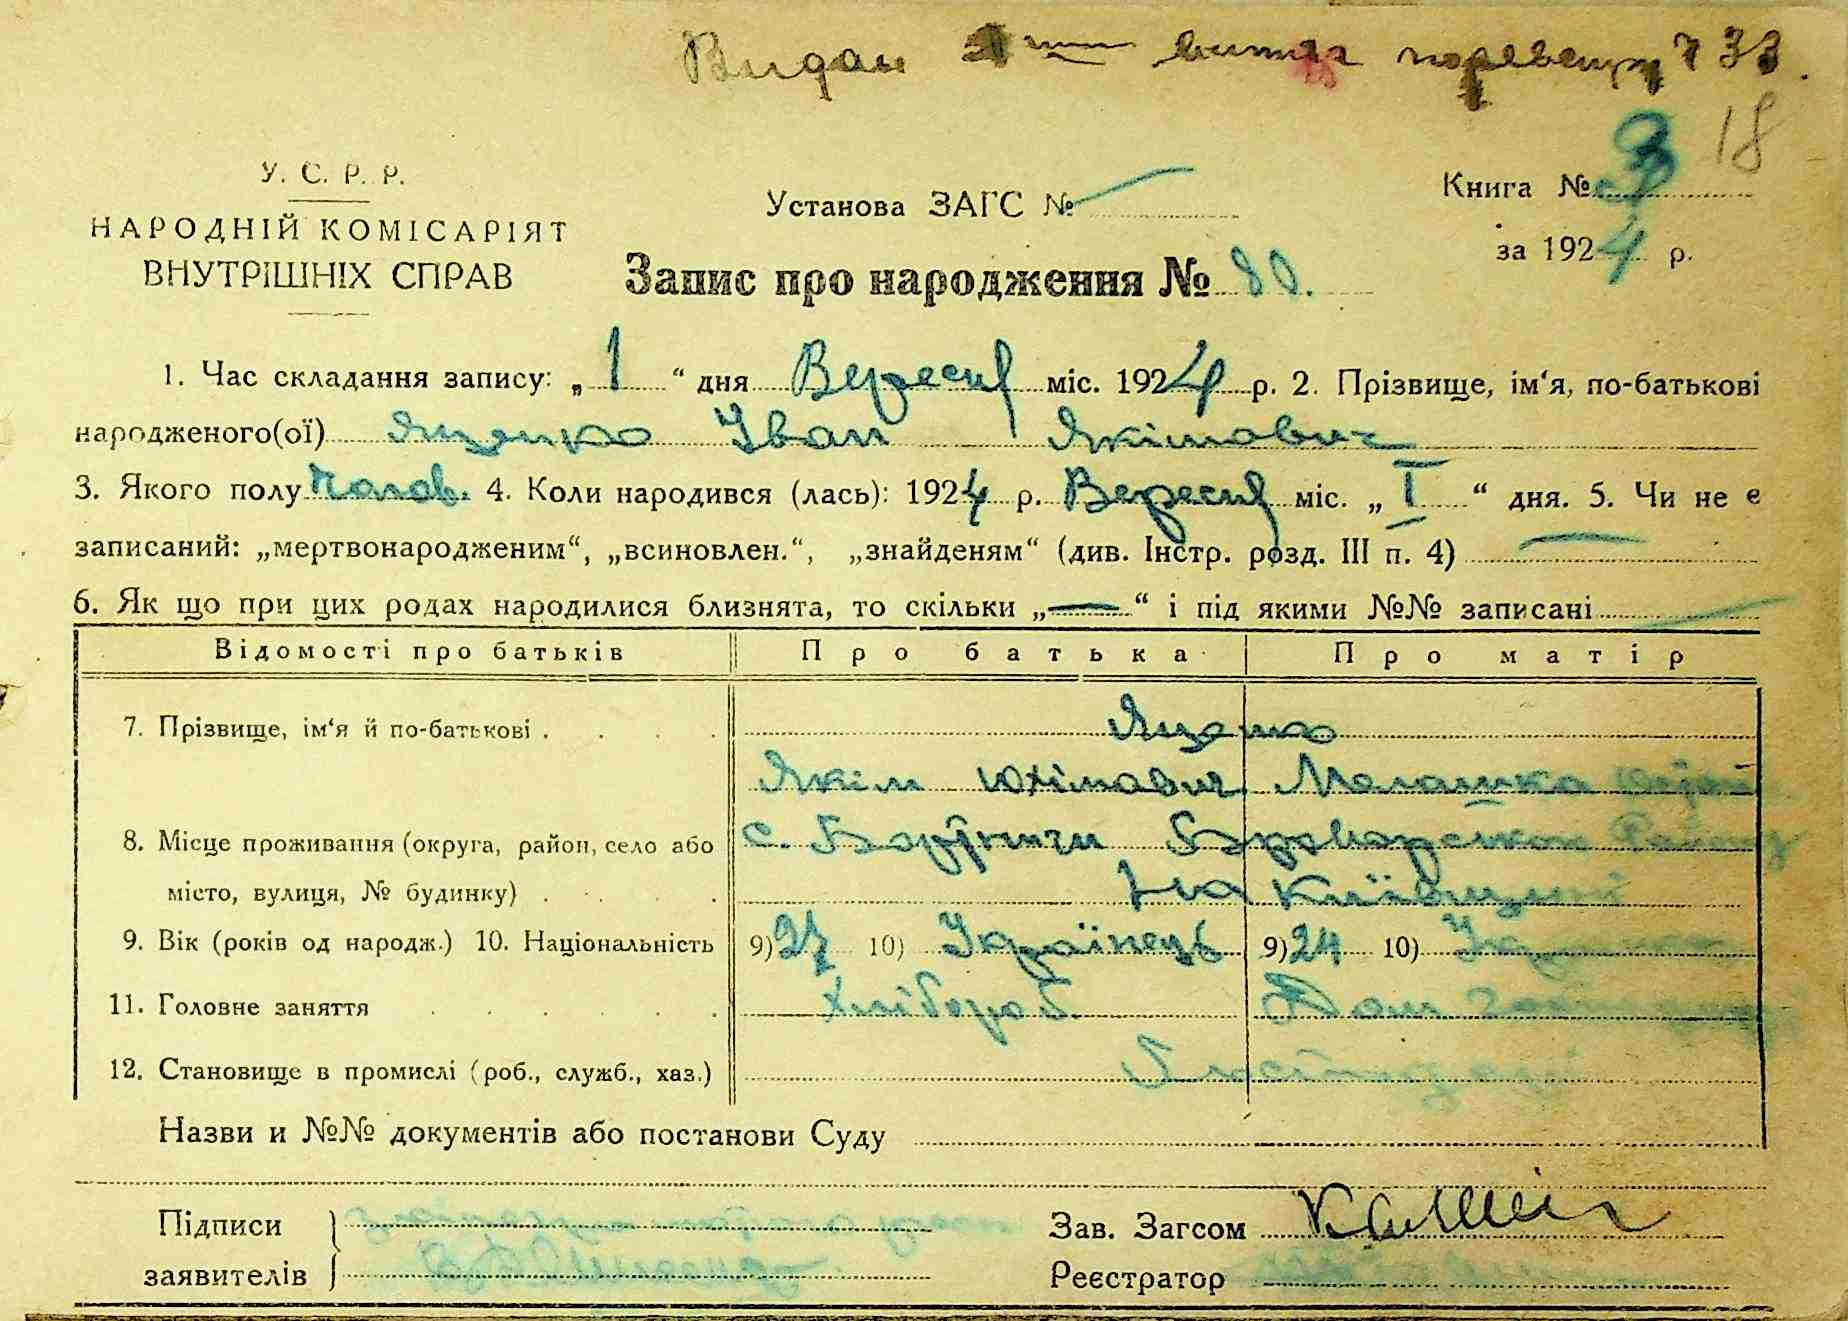 Видан витяг 33.
18
У. С. Р. Р.
НАРОДНІЙ КОМІСАРІЯТ
ВНУТРІШНІХ СПРАВ
Установа ЗАГС №
Книга № 3
за 1924 р.
Запис про народження № 80.
1. Час складання запису: „1“ дня Вересня міс. 1924 р. 2. Прізвище, ім‘я, по-батькові
народженого(ої) Яценко Іван Якімович
3. Якого полу Чолов. 4. Коли народився (лась): 1924 р. Вересня міс. „I“ дня. 5. Чи не є
записаний: „мертвонародженим“, „всиновлен.“, „знайденям“ (див. Інстр. розд. III п. 4)
6. Як що при цих родах народилися близнята, то скільки „—“ і під якими №№ записані
Відомості про батьків Про батька Про матір
7. Прізвище, ім‘я й по-батькові . . . . Яценко
Якім Юхімович Мелашка
8. Місце проживання (округа, район, село або с. Бортничи Броварського Району
місто, вулиця, № будинку) . . . . на Київщині
9. Вік (років од народж.) 10. Національність 9) 27 10) Українець 9) 24 10) Українка
11. Головне заняття . . . . . . Хлібороб. Дом
12. Становище в промислі (роб., служб., хаз.)
Назви и №№ документів або постанови Суду
Підписи
заявителів
Зав. Загсом
Реєстратор